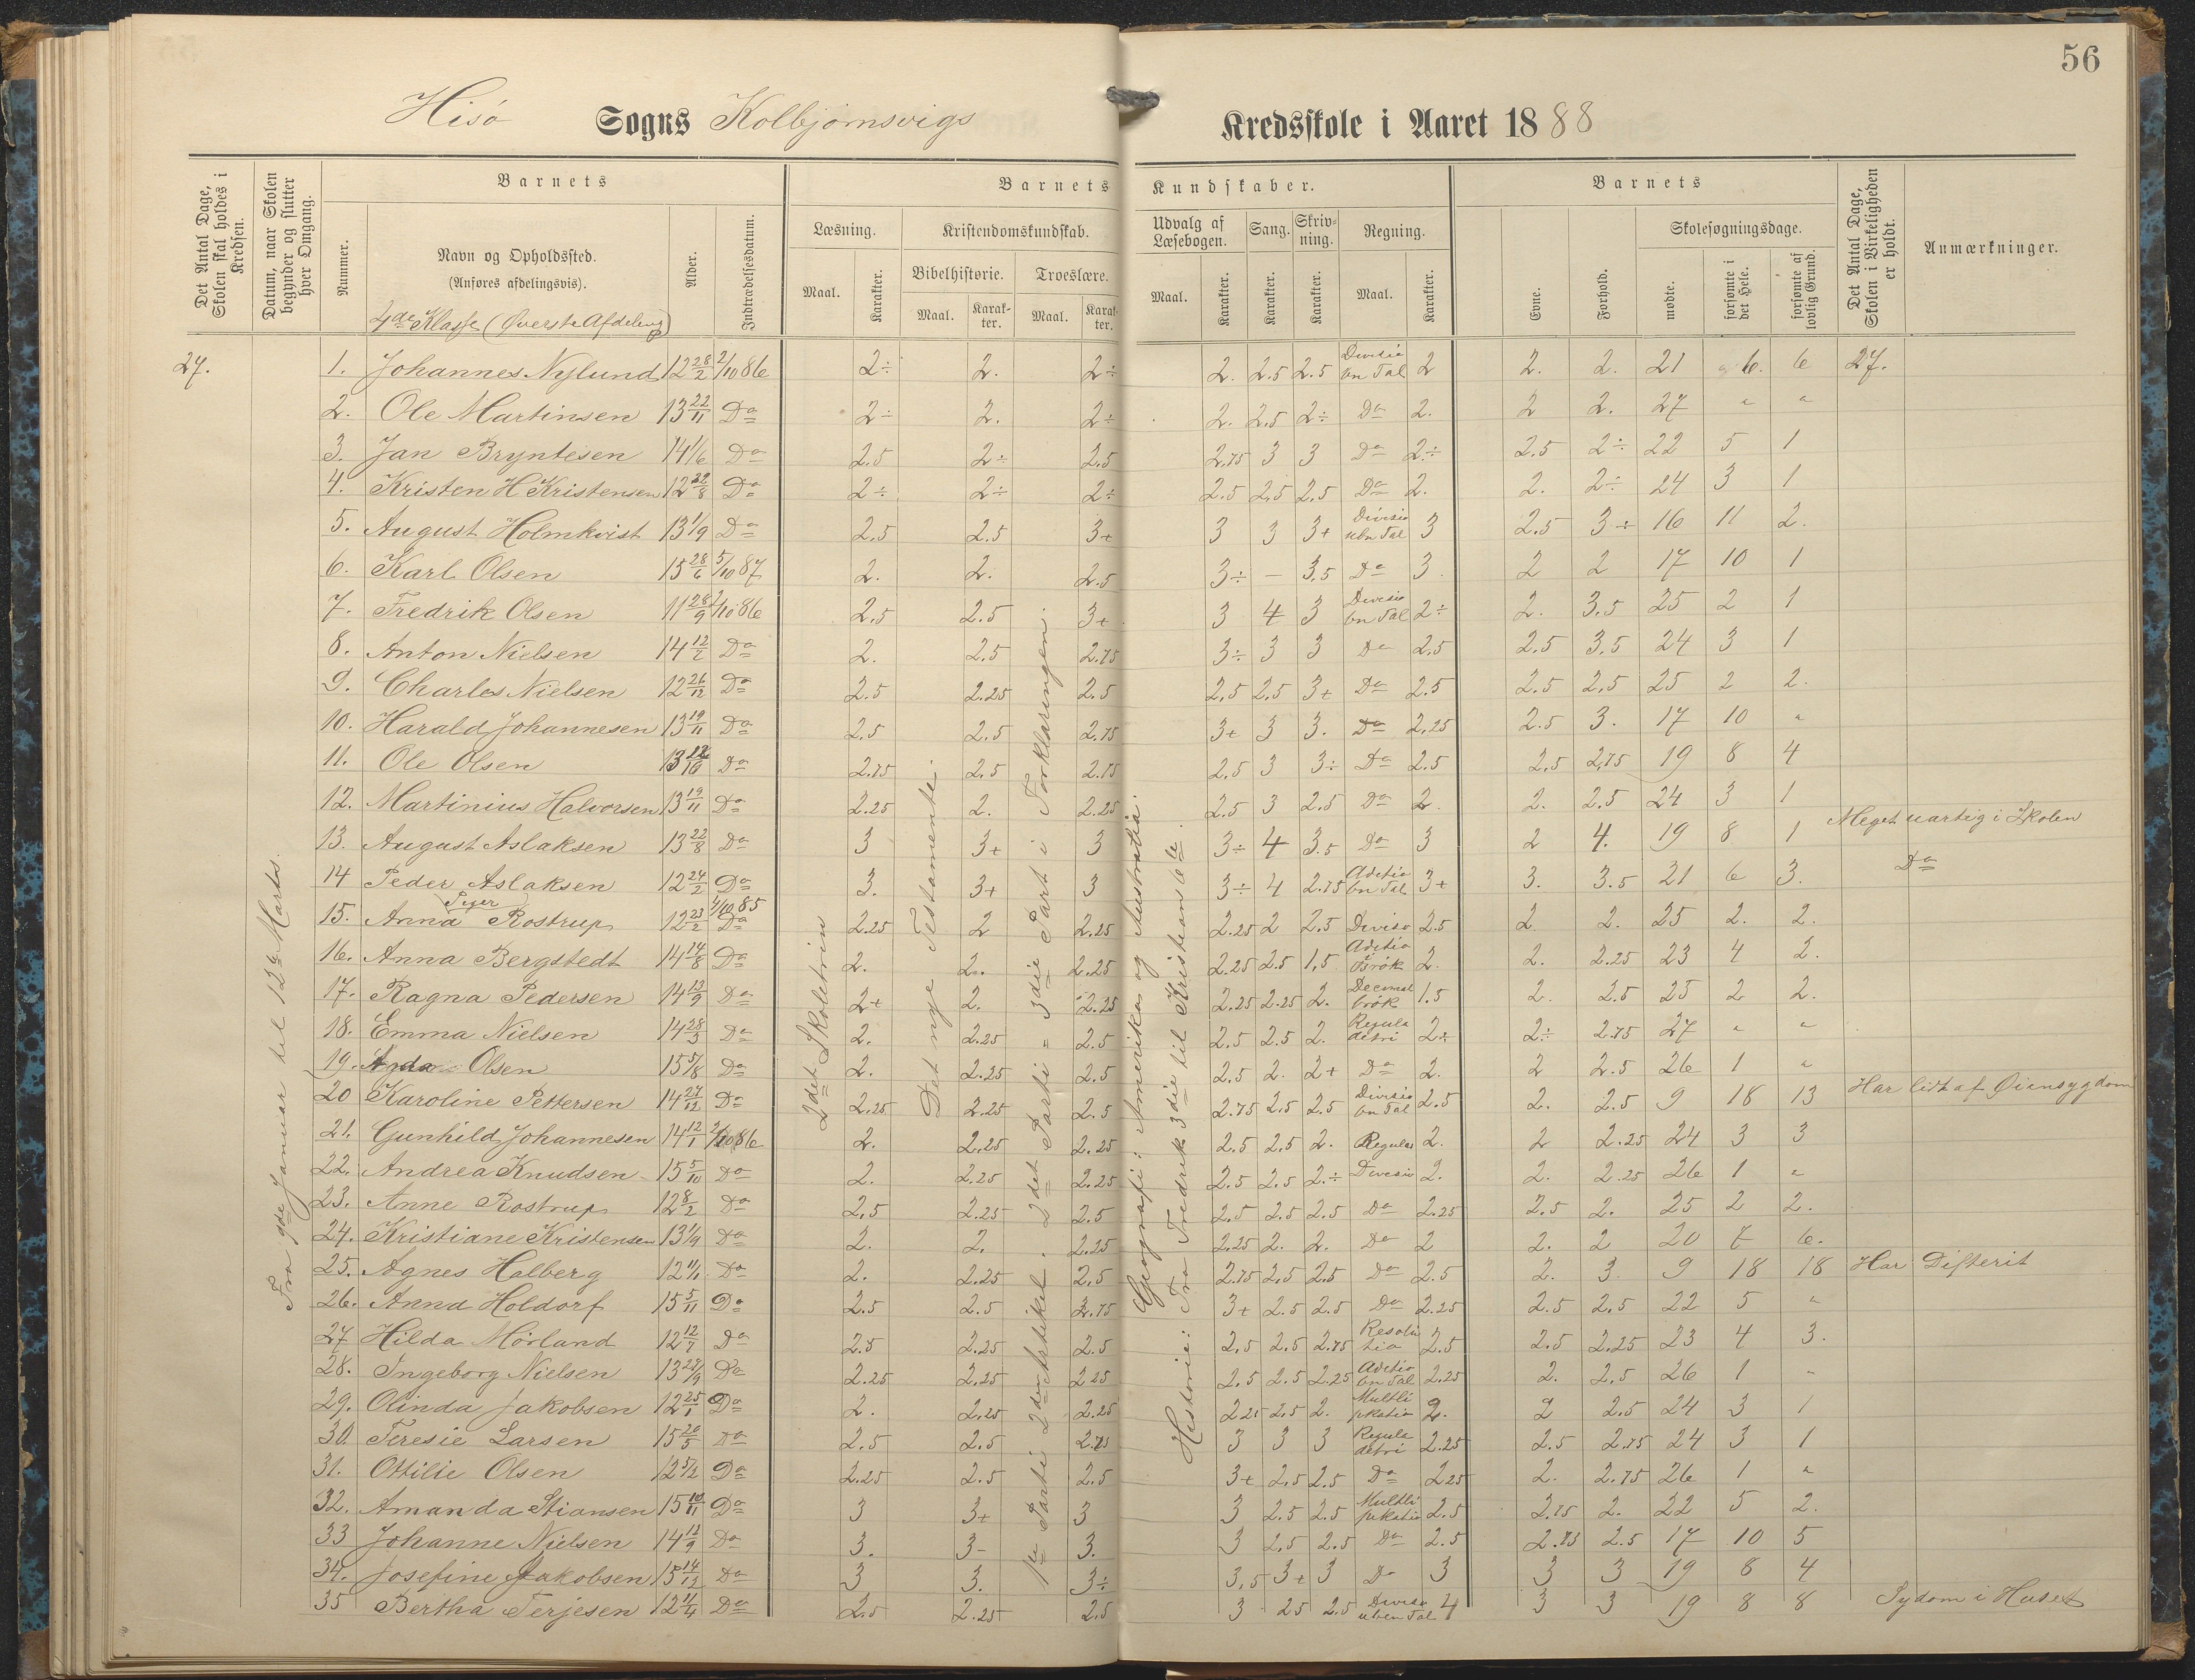 56
Hisø Sogns Kolbjørnsvigs Kredsskole i Aaret 1888
Det Antal Dage, Skolen skal holdes i Kredsen.
Datum, naar Skolen begynder og slutter hver Omgang.
Barnets
Nummer.
Navn og Opholdssted.
(Anføres afdelingsvis).
4de Klasse (Øverste Afdeling)
Alder.
Indtrædelsesdatum.
Barnets Kundskaber.
Læsning.
Maal. Karakter.
Kristendomskundskab.
Bibelhistorie. Troeslære.
Maal. Karakter. Maal. Karakter.
Udvalg af Læsebogen.
Maal. Karakter.
Sang. Karakter.
Skrivning. Karakter.
Regning.
Maal. Karakter.
Barnets
Evne. Forhold.
Skolesøgningsdage.
mødte. forsømte i det Hele. forsømte af lovlig Grund.
Det Antal Dage, Skolen i Virkeligheden er holdt.
Anmærkninger.
27.
Fra 9de Januar til 12te Marts.
2det Skoletrin
Det nye Testamente.
1te Parti 2den Artikel. 2det Parti = 3die Part i Forklaringen.
Geografi: Amerika og Australia.
Historie: Fra Fredrik 3die til Kristian 6te.
1. Johannes Nylund 12 28/2 2/10 86 2÷ 2. 2÷ 2. 2.5 2.5 Divisio en Tal 2 2. 2. 21 6. 6 27.
2. Ole Martinsen 13 22/11 Do 2÷ 2. 2÷ 2. 2.5 2÷ Do 2. 2 2. 27 " "
3. Jan Bryntesen 14 1/6 Do 2.5 2÷ 2.5 2.75 3 3 Do 2÷ 2.5 2÷ 22 5 1
4. Kristen H Kristensen 12 22/8 Do 2÷ 2÷ 2÷ 2.5 2.5 2.5 Do 2. 2. 2÷ 24 3 1
5. August Holmkvist 13 1/9 Do 2.5 2.5 3+ 3 3 3+ Divisio ubn Tal 3 2.5 3÷ 16 11 2.
6. Karl Olsen 15 28/6 5/10 87 2. 2. 2.5 3÷ — 3.5 Do 3. 2 2 17 10 1
7. Fredrik Olsen 11 28/9 2/10 86 2.5 2.5 3+ 3 4 3 Divisio bn Tal 2÷ 2. 3.5 25 2 1
8. Anton Nielsen 14 Do 2. 2.5 2.75 3÷ 3 3 Do 2.5 2.5 3.5 24 3 1
9. Charles Nielsen 12 26/12 Do 2.5 2.25 2.5 2.5 2.5 3+ Do 2.5 2.5 2.5 25 2 2.
10. Harald Johannesen 13 19/11 Do 2.5 2.5 2.75 3+ 3 3. Do 2.25 2.5 3. 17 10 "
11. Ole Olsen 13 Do 2.75 2.5 2.75 2.5 3 3÷ Do 2.5 2.5 2.75 19 8 4
12. Martinius Halvorsen 13 19/11 Do 2.25 2. 2.25 2.5 3 2.5 Do 2. 2. 2.5 24 3 1
13. August Aslaksen 13 22/8 Do 3 3+ 3 3÷ 4 3.5 Do 3 2 4. 19 8 1 Meget uartig i Skolen
14 Peder Aslaksen 12 24/2 Do 3. 3+ 3 3÷ 4 2.75 Aditio bn Tal 3+ 3. 3.5 21 6 3. Do
Piger
15. Anna Rostrup 12 23/2 1/10 85 Do 2.25 2 2.25 2.25 2 2.5 Diviso 2.5 2. 2. 25 2. 2.
16. Anna Bergstedt 14 14/8 Do 2. 2. 2.25 2.25 2.5 1.5 Aditio Brök 2. 2. 2.25 23 4 2.
17. Ragna Pedersen 14 13/9 Do 2+ 2. 2.25 2.25 2.25 2. Decimal brök 1.5 2. 2.5 25 2 2.
18. Emma Nielsen 14 28/3 Do 2. 2.25 2.5 2.5 2.5 2. Regula detri 2÷ 2÷ 2.75 27 " "
19. Olsen 15 5/8 Do 2. 2.25 2.5 2.5 2. 2+ Do 2. 2 2.5 26 1 "
20 Karoline Pettersen 14 27/12 Do 2.25 2.25 2.5 2.75 2.5 2.5 Divisio bn Tal 2.5 2. 2.5 9 18 13 Har lidt af Øiensygdom
21. Gunhild Johannesen 14 12/1 2/10 86 2. 2.25 2.25 2.5 2.5 2. Regula 2. 2 2.25 24 3 3
22. Andrea Knudsen 15 5/10 Do 2. 2.25 2.25 2.5 2.5 2÷ Divisio 2. 2. 2.25 26 1 "
23. Anne Rostrup 12 8/2 Do 2.5 2.25 2.5 2.5 2.5 2.5 Do 2.25 2.5 2. 25 2 2.
24. Kristiane Kristensen 13 1/9 Do 2. 2. 2.25 2.25 2. 2. Do 2 2. 2 20 7 6.
25. Agnes Halberg 12 11/1 Do 2. 2.25 2.5 2.75 2.5 2.5 Do 2.5 2. 3. 9 18 18 Har Difterit
26. Anna Holdorf 15 5/11 Do 2.5 2.5 2.75 3+ 2.5 2.5 Do 2.25 2.5 2.5 22 5 "
27 Hilda Mörland 12 12/7 Do 2.5 2.25 2.5 2.5 2.5 2.75 Resolutio 2.5 2.5 2.25 23 4 3.
28. Ingeborg Nielsen 13 27/9 Do 2.25 2.25 2.25 2.5 2.5 2.25 Aditio bn Tal 2.25 2. 2.5 26 1 "
29. Olinda Jakobsen 12 25/1 Do 2. 2.25 2.25 2.25 2.5 2. Multiplikatio 2. 2 2.5 24 3 1
30. Teresie Larsen 15 20/5 Do 2.5 2.5 2.75 3 3 3 Regula detri 2.25 2.5 2.75 24 3 1
31. Ottilie Olsen 12 5/2 Do 2.25 2.5 2.5 3+ 2.5 2.5 Do 2.25 2. 2.75 26 1 "
32. Amanda Stiansen 15 10/11 Do 3 3+ 3 3 2.5 2.5 Multiplikatio 2.5 2.75 2. 22 5 2.
33 Johanne Nielsen 14 12/9 Do 3. 3- 3. 3 2.5 2.5 Do 2.5 2.75 2.5 17 10 5
34. Josefine Jakobsen 15 14/12 Do 3 3. 3÷ 3.5 3+ 3 Do 3 3 3 19 8 4
35 Bertha Terjesen 12 11/4 Do 2.5 2.25 2.5 3 2.5 2.5 Diviso uben Tal 4 3 3 19 8 8 Sydom i Huset